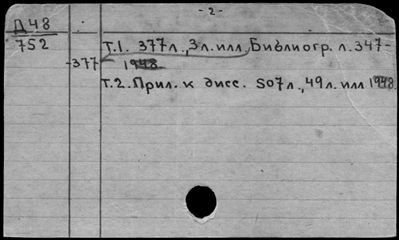 - 2 -
Д 48
752
Т.1. 377л., 3л. илл, Библиогр. л. 347-
-377 1948.
Т.2. Прил. к дисс. 507л., 49л. илл 1948.